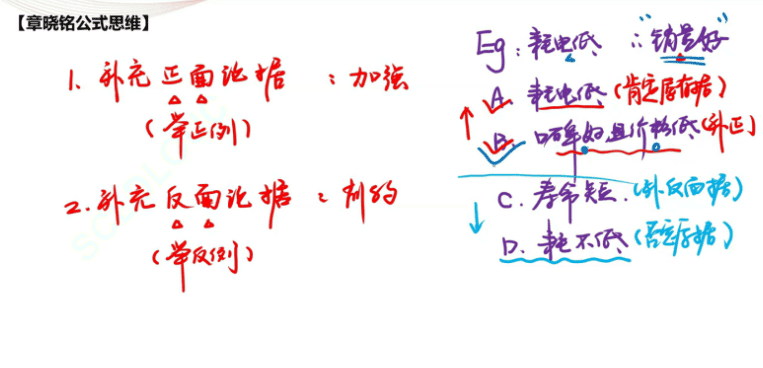 【章晓铭公式思维】
1. 补充正面论据:加强
(举正例)
2. 补充反面论据:削弱
(举反例)
Eg:耗电低 ∴"销量好"
A 耗电低(肯定原有据)
B. 噪单好且价格低(补正)
C. 寿命短.(补反面据)
D. 耗不低(否定原据)